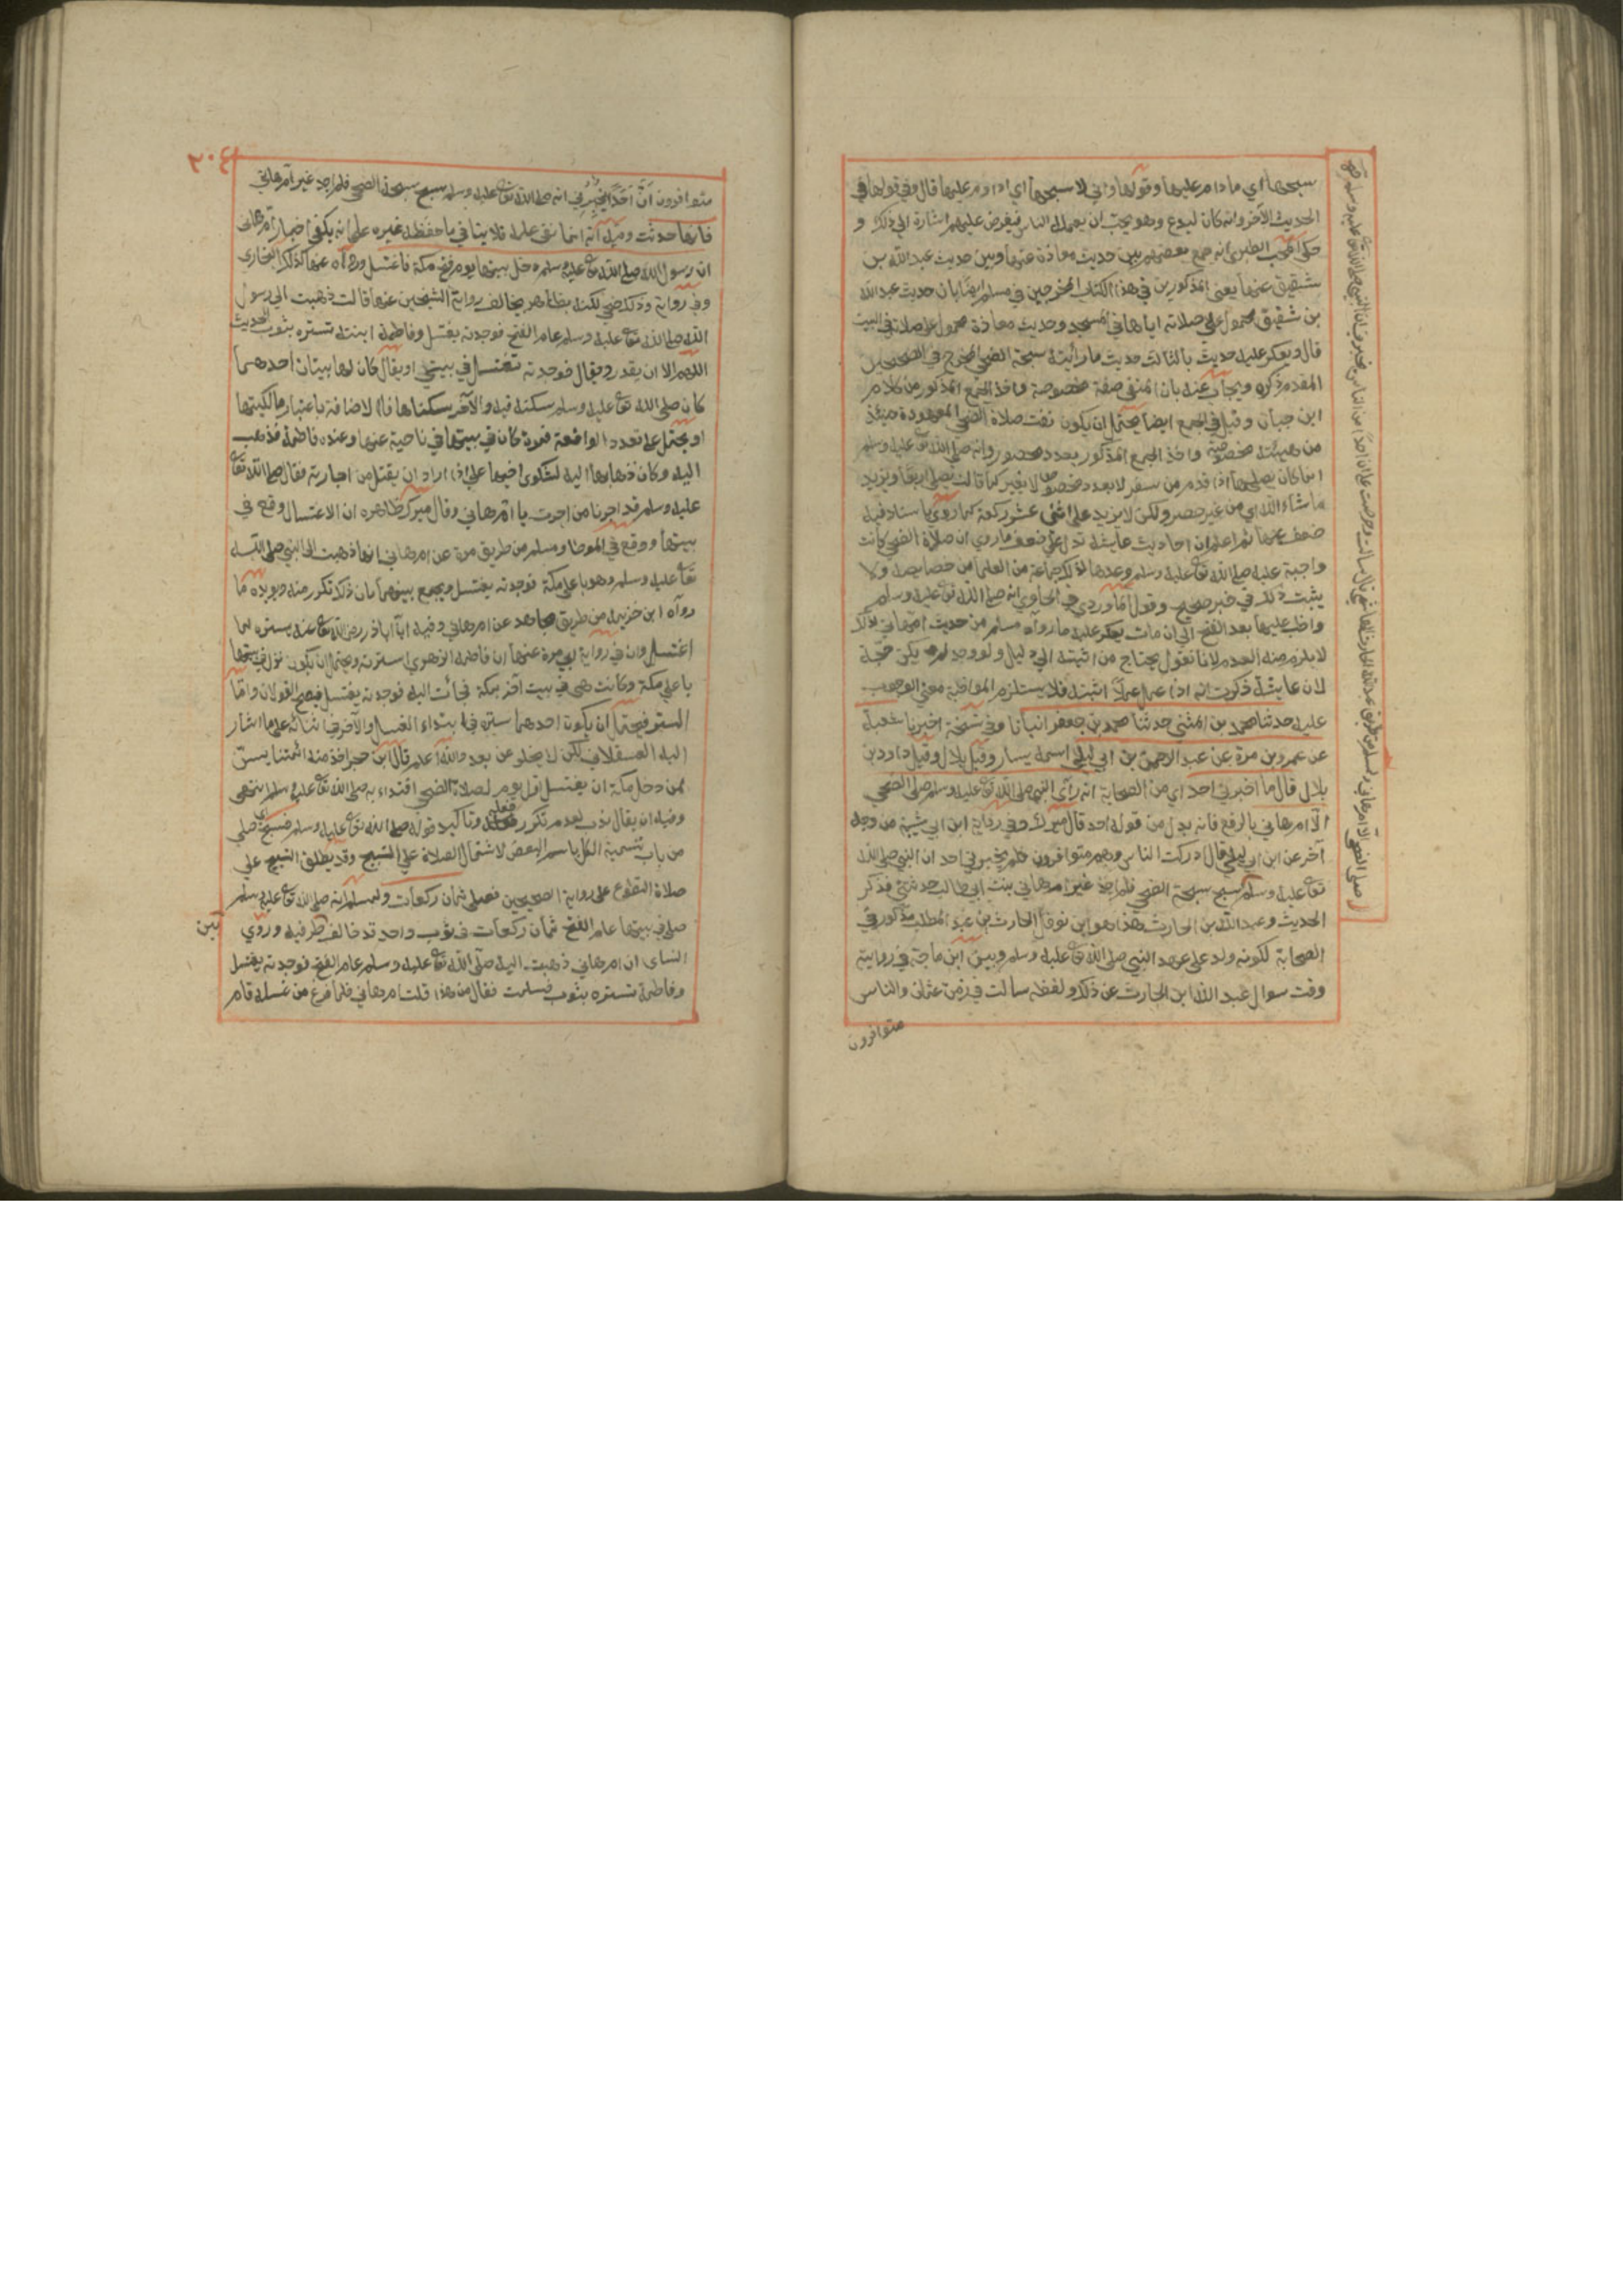 سبحها اي ما دام عليها وقولها واني لا سبحها اي اداوم عليها قال وفي قولها في
الحديث الآخر وانه كان ليدع وهو يحب ان يعمله الناس فيفرض عليهم اشارة الي ذلك و
حكي المحب الطبري انه جمع بعضهم بين حديث معاذة عنها وبين حديث عبد الله بن
شقيق عنها يعني المذكورين في هذا الكتاب المخرجين في مسلم ايضا بان حديث عبد الله
بن شقيق محمول علي صلاته اياها في المسجد وحديث معاذة محمول علي صلاته في البيت
قال ويعكر عليه حديث بالثالث حديث ما رأيته سبحة الضحي المخرج في الصحيحين
المقدم ذكره ويجاب عنه بان المنفي صفة مخصوصة واخذ الجمع المذكور من كلام
ابن حبان وقيل في الجمع ايضا يحتمل ان يكون نفت صلاة الضحي المعهودة حينئذ
من هيئة مخصوصة واخذ الجمع المذكور بعدد محصور وانه صلي الله تعا عليه وسلم
انما كان يصليها اذا قدم من سفر لا بعدد مخصوص لا بغير كما قالت يصلي اربعا ويزيد
ما شاء الله اي من غير حصر ولكن لا يزيد علي اثني عشر ركعة كما روي باسناد فيه
ضعف عنها ثم اعلم ان احاديث عايشة تدل علي ضعف ما روي ان صلاة الضحي كانت
واجبة عليه صلي الله تعا عليه وسلم وعدها لذلك جماعة من العلما من خصايصه ولا
يثبت ذلك في خبر صحيح وقول الماوردي في الحاوي انه صلي الله تعا عليه وسلم
واظب عليها بعد الفتح الي ان مات يعكر عليه ما رواه مسلم من حديث ام هاني لذلك
لا يلزم منه العدم لانا نقول يحتاج من اثبته الي دليل ولو وجد لم يكن حجة
لان عايشة ذكرت انه اذا عمل عملا اثبته فلا يستلزم المواظبة معني الوجوب
عليه حدثنا محمد بن المثني حدثنا محمد بن جعفر انبأنا وفي نسخة اخبرنا شعبة
عن عمرو بن مرة عن عبد الرحمن بن ابي ليلي اسمه يسار وقيل بلال وقيل داود بن
بلال قال ما اخبرني احد اي من الصحابة انه رأي النبي صلي الله تعا عليه وسلم صلي الضحي
الا ام هاني بالرفع فانه بدل من قوله احد قال ميرك وفي رواية ابن ابي شيبة من وجه
آخر عن ابن ابي ليلي قال ادركت الناس وهم متوافرون فلم يخبرني احد ان النبي صلي الله
تعا عليه وسلم سبح سبحة الضحي فلم اجد غير ام هاني بنت ابي طالب حدثتني فذكر
الحديث وعبد الله بن الحارث هذا هو ابن نوفل الحارث بن عبد المطلب مذكور في
الصحابة لكونه ولد علي عهد النبي صلي الله تعا عليه وسلم وبين ابن ماجة في روايته
وقت سوال عبد الله ابن الحارث عن ذلك ولفظه سالت في زمن عثمان والناس
متوافرون
صلي الضحي الا ام هاني ولمسلم من طريق عبد الله ابن الحارث الهاشمي قال سالت وحرصت علي ان احدا من الناس يخبرني ان النبي صلي الله تعا عليه وسلم سبح
٢٠٤
متوافرون أن أحدا يخبرني انه صلي الله تعا عليه وسلم سبح سبحة الضحي فلم اجد غير ام هاني
فانها حدثت وميل انه انما نفي علمه فلا ينافي ما حفظه غيره علي انه يكفي اخبار ام هاني
ان رسول الله صلي الله تعا عليه وسلم دخل بيتها يوم فتح مكة فاغتسل ورواه عنها كذلك البخاري
وفي رواية وذلك ضحي لكنه بظاهره يخالف رواية الشيخين عنها قالت ذهبت الي رسول
الله صلي الله تعا عليه وسلم عام الفتح فوجدته يغتسل وفاطمة ابنته تستره بثوب الحديث
اللهم الا ان يقدر ويقال فوجدته تغتسل في بيتي او يقال كان لها بيتان احدهما
كان صلي الله تعا عليه وسلم سكنه فيه والآخر سكناها فالاضافة باعتبار مالكيتها
او يحتمل علي تعدد الواقعة فمرة كان في بيتها في ناحية عنها وعنده فاطمة فذهب
اليه وكان ذهابها اليه لشكوي اخيها علي اذا اراد ان يقتل من اجارته فقال صلي الله تعا
عليه وسلم قد اجرنا من اجرت يا ام هاني وقال ميرك ظاهره ان الاغتسال وقع في
بيتها ووقع في الموطا ومسلم من طريق مرة عن ام هاني انها ذهبت الي النبي صلي الله
تعا عليه وسلم وهو باعلي مكة فوجدته يغتسل ويجمع بينهما بان ذلك تكرر منه ويويده ما
رواه ابن خزيمة من طريق مجاهد عن ام هاني وفيه ان ابا ذر رضي الله تعا عنه يستره لما
اغتسل وان في رواية ابي مرة عنها ان فاطمة الزهري استرته ويحتمل ان يكون نزل في بيتها
باعلي مكة وكانت هي في بيت آخر بمكة فجائت اليه فوجدته يغتسل فيصح القولان واما
الستر فيحتمل ان يكون احدهما ستره في ابتداء الغسل والآخر في اثنائه علي ما اشار
اليه العسقلاني لكن لا يخلو عن بعد والله اعلم قال ابن حجر اخذ منه ائمتنا يسن
لمن دخل مكة ان يغتسل اول يوم لصلاة الضحي اقتداء به صلي الله تعا عليه وسلم انتهي
وفيه ان يقال ندب لعدم تكرر فعله وتاكيد قوله صلي الله تعا عليه وسلم فسبح اي صلي
من باب تسمية الكل باسم البعض لاشتمال الصلاة علي التسبيح وقد يطلق التسبيح علي
صلاة التطوع علي رواية الصحيحين فصلي ثمان ركعات ولمسلم انه صلي الله تعا عليه وسلم
صلي في بيتها عام الفتح ثمان ركعات في ثوب واحد قد خالف طرفيه وروي
النساي ان ام هاني ذهبت اليه صلي الله تعا عليه وسلم عام الفتح فوجدته يغتسل
وفاطمة تستره بثوب فسلمت فقال من هذا قلت ام هاني فلما فرغ من غسله قام